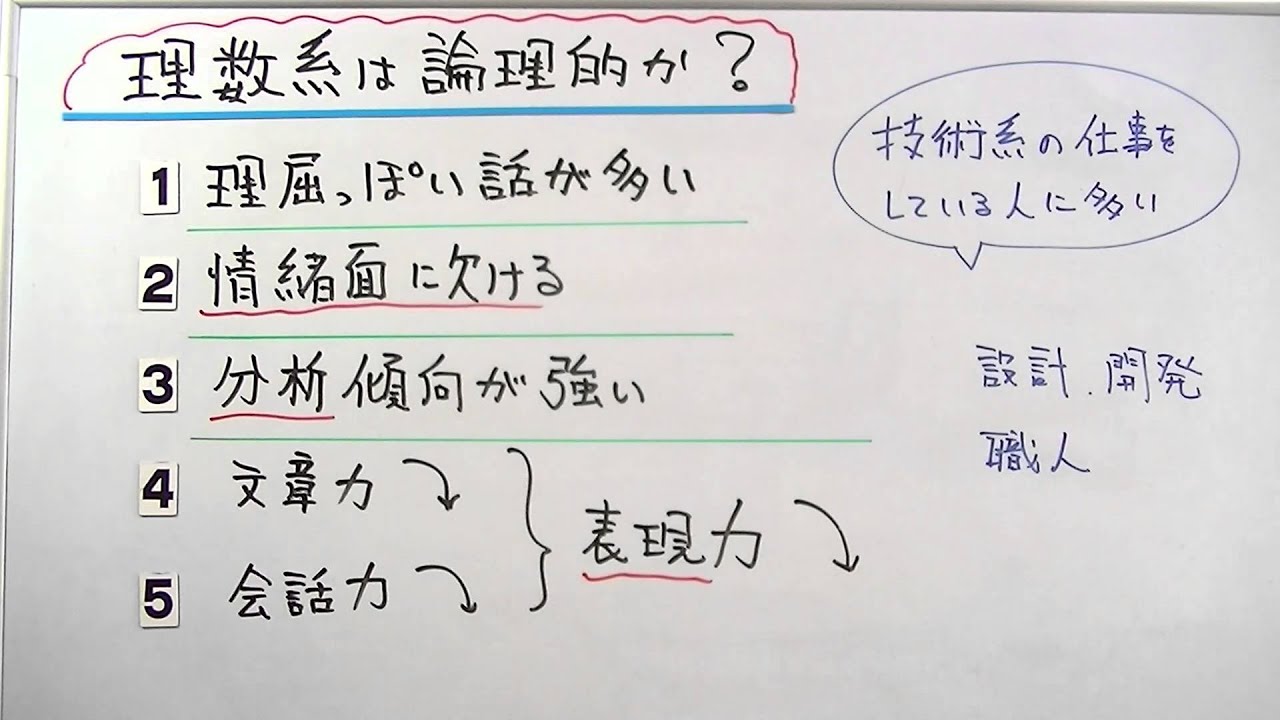 理数系は論理的か?
1 理屈っぽい話が多い
2 情緒面に欠ける
3 分析傾向が強い
4 文章力
5 会話力
表現力
技術系の仕事を
している人に多い
設計.開発
職人